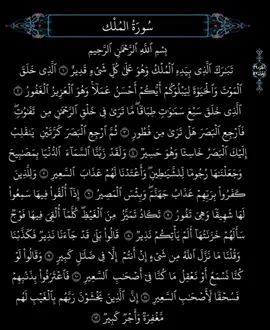 سُورَةُ المُلْك
بِسْمِ اللَّهِ الرَّحْمَٰنِ الرَّحِيمِ
تَبَٰرَكَ ٱلَّذِى بِيَدِهِ ٱلْمُلْكُ وَهُوَ عَلَىٰ كُلِّ شَىْءٍ قَدِيرٌ ۝ ٱلَّذِى خَلَقَ
ٱلْمَوْتَ وَٱلْحَيَوٰةَ لِيَبْلُوَكُمْ أَيُّكُمْ أَحْسَنُ عَمَلًا وَهُوَ ٱلْعَزِيزُ ٱلْغَفُورُ ۝
ٱلَّذِى خَلَقَ سَبْعَ سَمَٰوَٰتٍ طِبَاقًا مَّا تَرَىٰ فِى خَلْقِ ٱلرَّحْمَٰنِ مِن تَفَٰوُتٍ
فَٱرْجِعِ ٱلْبَصَرَ هَلْ تَرَىٰ مِن فُطُورٍ ۝ ثُمَّ ٱرْجِعِ ٱلْبَصَرَ كَرَّتَيْنِ يَنقَلِبْ
إِلَيْكَ ٱلْبَصَرُ خَاسِئًا وَهُوَ حَسِيرٌ ۝ وَلَقَدْ زَيَّنَّا ٱلسَّمَآءَ ٱلدُّنْيَا بِمَصَٰبِيحَ
وَجَعَلْنَٰهَا رُجُومًا لِّلشَّيَٰطِينِ وَأَعْتَدْنَا لَهُمْ عَذَابَ ٱلسَّعِيرِ ۝ وَلِلَّذِينَ
كَفَرُوا۟ بِرَبِّهِمْ عَذَابُ جَهَنَّمَ وَبِئْسَ ٱلْمَصِيرُ ۝ إِذَآ أُلْقُوا۟ فِيهَا سَمِعُوا۟
لَهَا شَهِيقًا وَهِىَ تَفُورُ ۝ تَكَادُ تَمَيَّزُ مِنَ ٱلْغَيْظِ كُلَّمَآ أُلْقِىَ فِيهَا فَوْجٌ
سَأَلَهُمْ خَزَنَتُهَآ أَلَمْ يَأْتِكُمْ نَذِيرٌ ۝ قَالُوا۟ بَلَىٰ قَدْ جَآءَنَا نَذِيرٌ فَكَذَّبْنَا
وَقُلْنَا مَا نَزَّلَ ٱللَّهُ مِن شَىْءٍ إِنْ أَنتُمْ إِلَّا فِى ضَلَٰلٍ كَبِيرٍ ۝ وَقَالُوا۟ لَوْ
كُنَّا نَسْمَعُ أَوْ نَعْقِلُ مَا كُنَّا فِىٓ أَصْحَٰبِ ٱلسَّعِيرِ ۝ فَٱعْتَرَفُوا۟ بِذَنۢبِهِمْ
فَسُحْقًا لِّأَصْحَٰبِ ٱلسَّعِيرِ ۝ إِنَّ ٱلَّذِينَ يَخْشَوْنَ رَبَّهُم بِٱلْغَيْبِ لَهُم
مَّغْفِرَةٌ وَأَجْرٌ كَبِيرٌ ۝